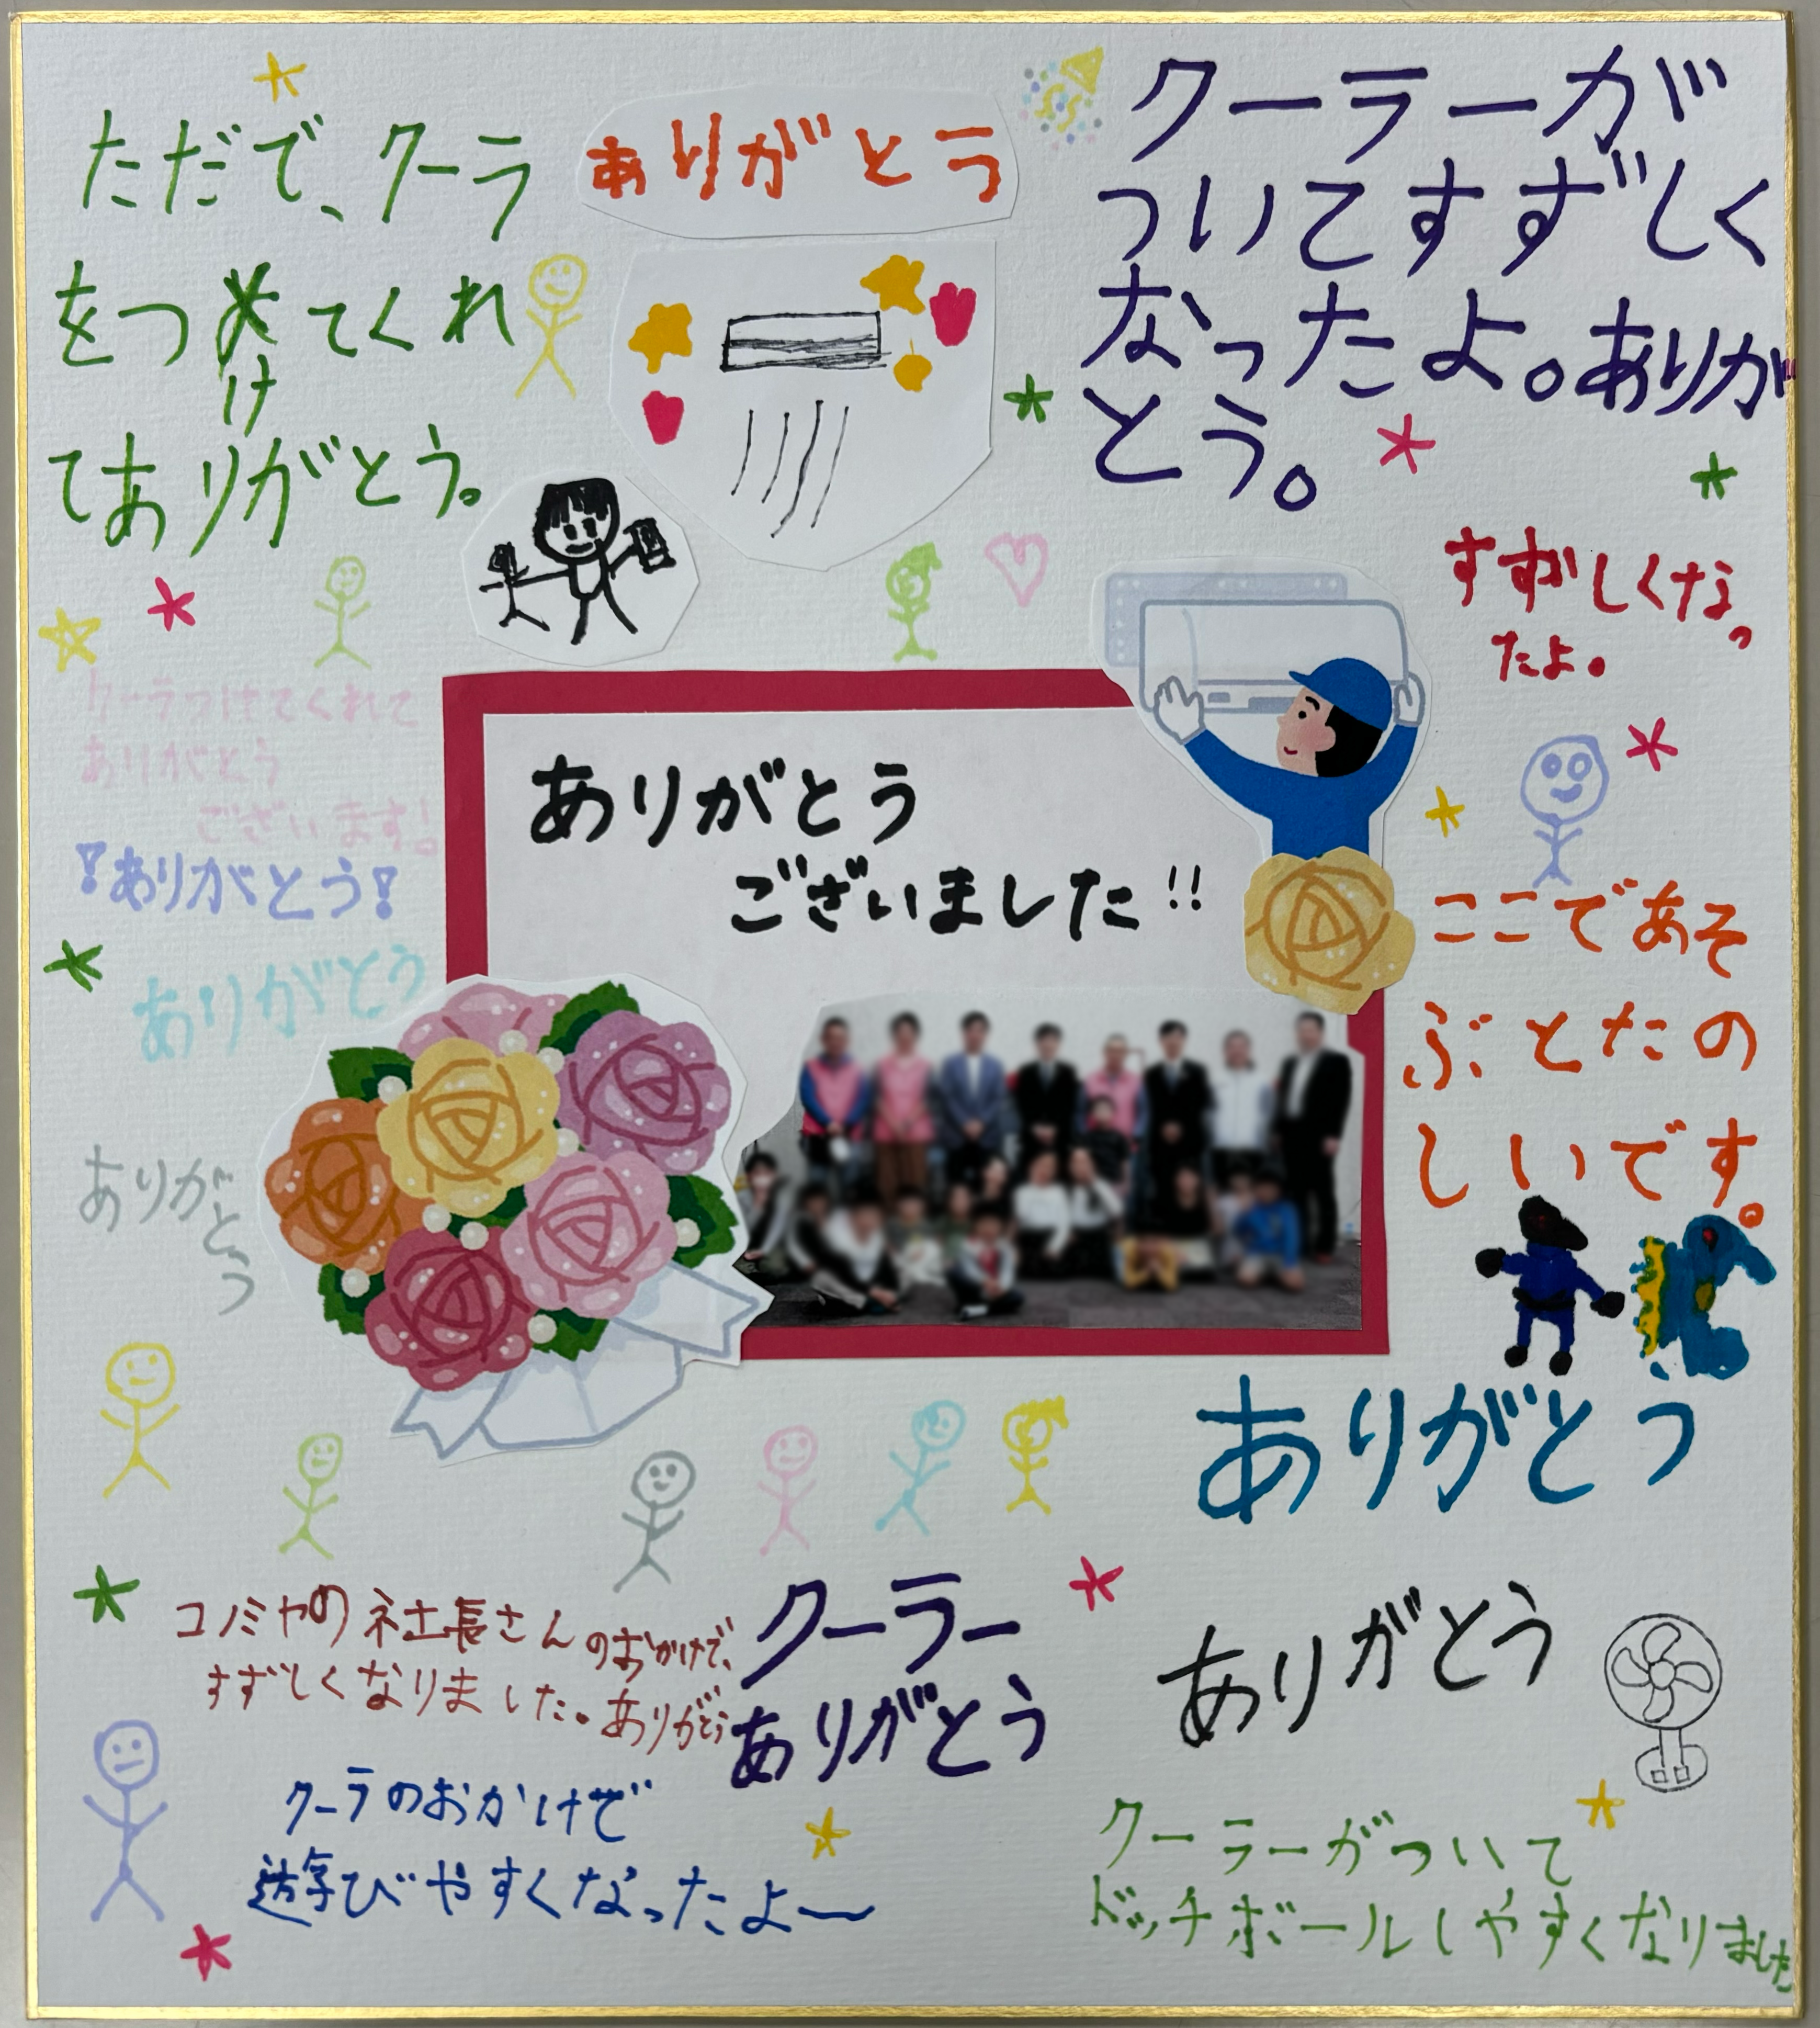 ただで、クーラ
をつけてくれ
てありがとう。
ありがとう
クーラーが
ついてすずしく
なったよ。ありが
とう。
すずしくなっ
たよ。
クーラつけてくれて
ありがとう
ございます!
!ありがとう!
ありがとう
ありがとう
ありがとう
ございました!!
ここであそ
ぶとたの
しいです。
ありがとう
コノミヤの社長さんのおかげで、
すずしくなりました。ありがとう
クーラー
ありがとう
ありがとう
クーラのおかげで
遊びやすくなったよ〜
クーラーがついて
ドッチボールしやすくなりました